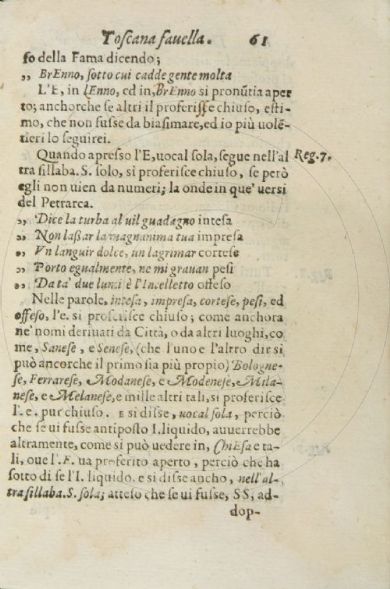 Toscana fauella. 61
so della Fama dicendo;
„ BrEnno, sotto cui cadde gente molta
L'E, in lEnno, ed in, BrEnno si pronũtia aper
to; anchorche se altri il proferisse chiuso, esti-
mo, che non fusse da biasimare, ed io più uolẽ-
tieri lo seguirei.
Quando apresso l'E, uocal sola, segue nell'al Reg. 7.
tra sillaba. S. solo, si proferisce chiuso, se però
egli non uien da numeri; la onde in que' uersi
del Petrarca.
„ Dice la turba al uil guadagno intesa
„ Non laßar la magnanima tua impresa
„ Vn languir dolce, un lagrimar cortese
„ Porto egualmente, ne mi grauan pesi
„ Da ta' due lumi è l'Intelletto offeso
Nelle parole, intesa, impresa, cortese, pesi, ed
offeso, l'e. si proferisce chiuso; come anchora
ne' nomi deriuati da Città, o da altri luoghi, co
me, Sanese, e Senese, (che l'uno e l'altro dir si
può ancorche il primo sia più propio) Bologne-
se, Ferrarese, Modanese, e Modenese, Mila-
nese, e Melanese, e mille altri tali, si proferisce
l'. e. pur chiuso. E si disse, uocal sola, perciò
che se ui fusse antiposto I. liquido, auuerrebbe
altramente, come si può uedere in, ChiEsa e ta-
li, oue l'. E. ua proferito aperto, perciò che ha
sotto di se l'I. liquido. e si disse ancho, nell'al-
tra sillaba. S. sola; atteso che se ui fusse, SS, ad-
dop-